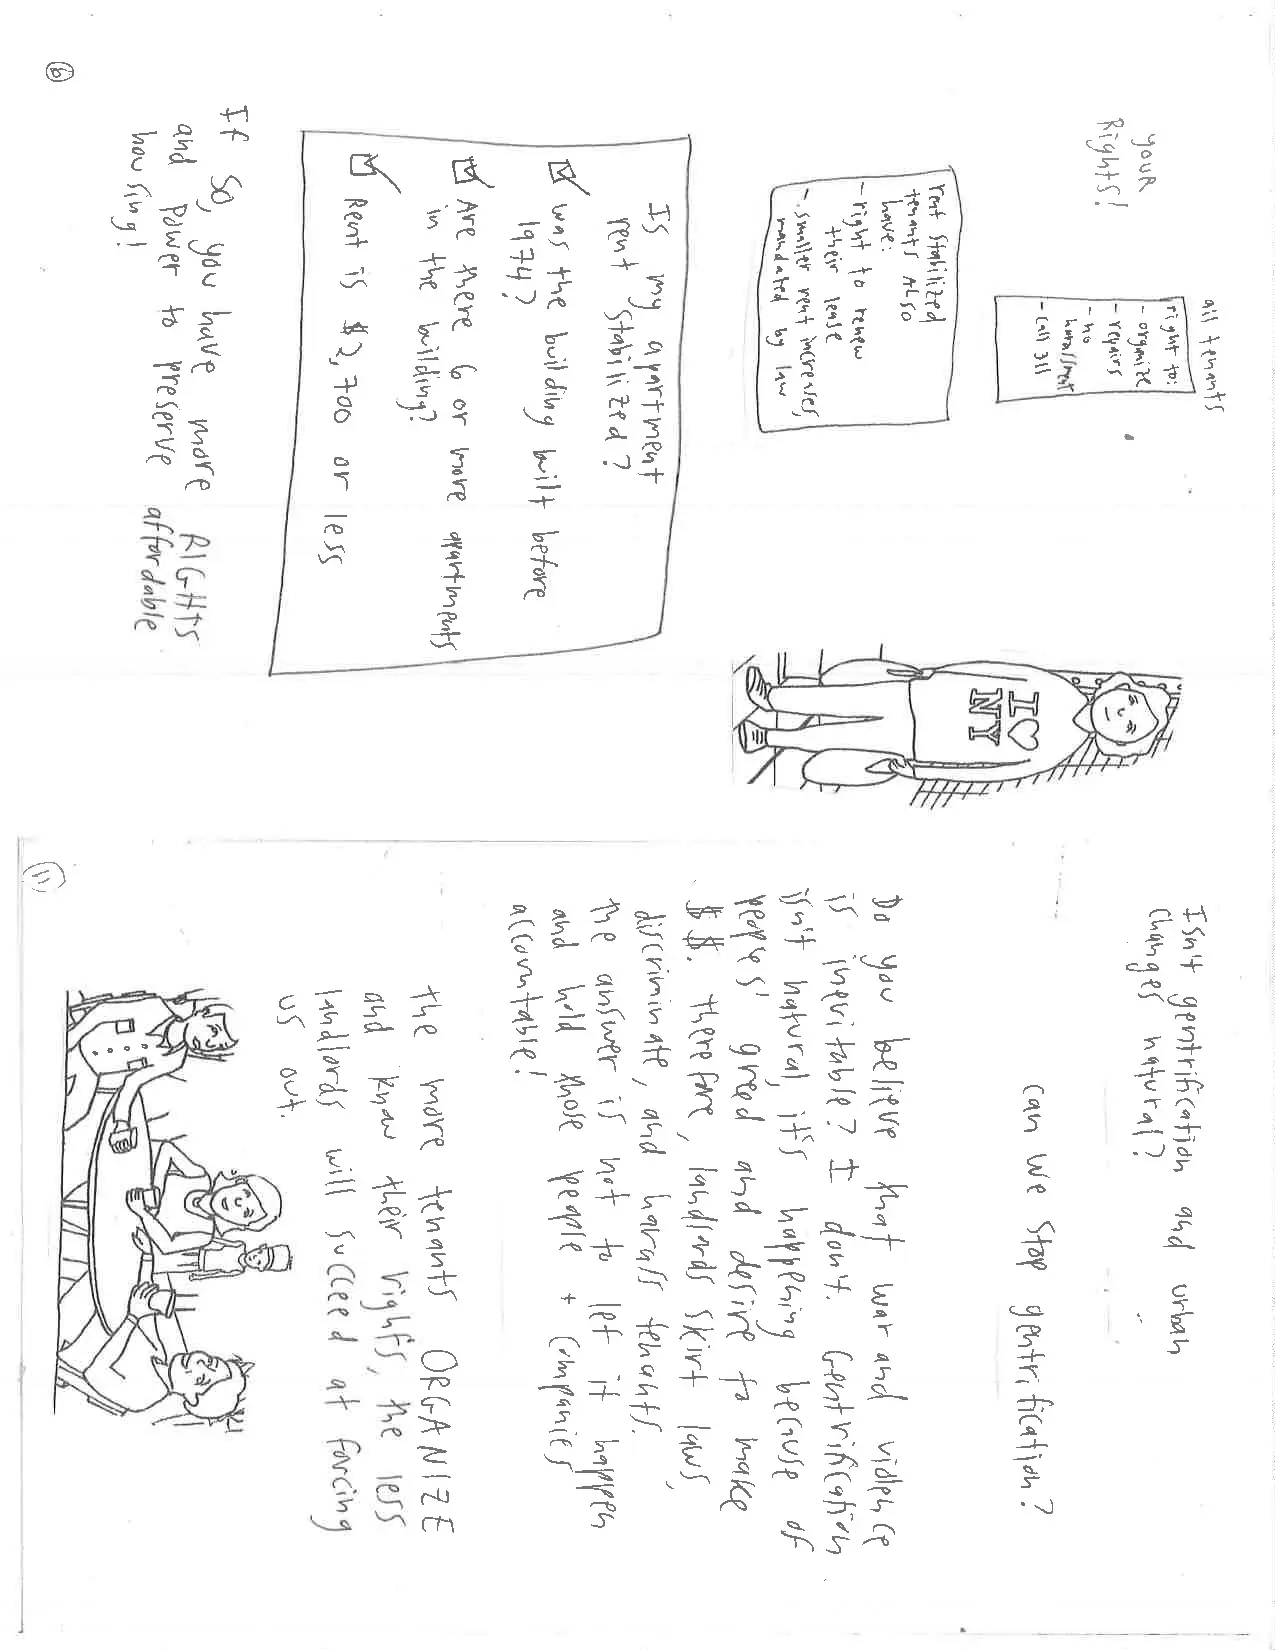 YOUR
Rights!
all tenants
right to:
- organize
- repairs
- no
harassment
- call 311
rent stabilized
tenants ALSO
have:
- right to renew
their lease
- smaller rent increases,
mandated by law
I ♡
NY
Is my apartment
rent stabilized?
☑ was the building built before
1974?
☑ Are there 6 or more apartments
in the building?
☑ Rent is $2,700 or less
If so, you have more RIGHTS
and power to preserve affordable
housing!
6
Isn't gentrification and urban
changes natural?
can we stop gentrification?
Do you believe that war and violence
is inevitable? I don't. Gentrification
isn't natural, it's happening because of
peoples' greed and desire to make
$$. therefore, landlords skirt laws,
discriminate, and harass tenants.
the answer is not to let it happen
and hold those people + companies
accountable!
the more tenants ORGANIZE
and know their rights, the less
landlords will succeed at forcing
us out.
11